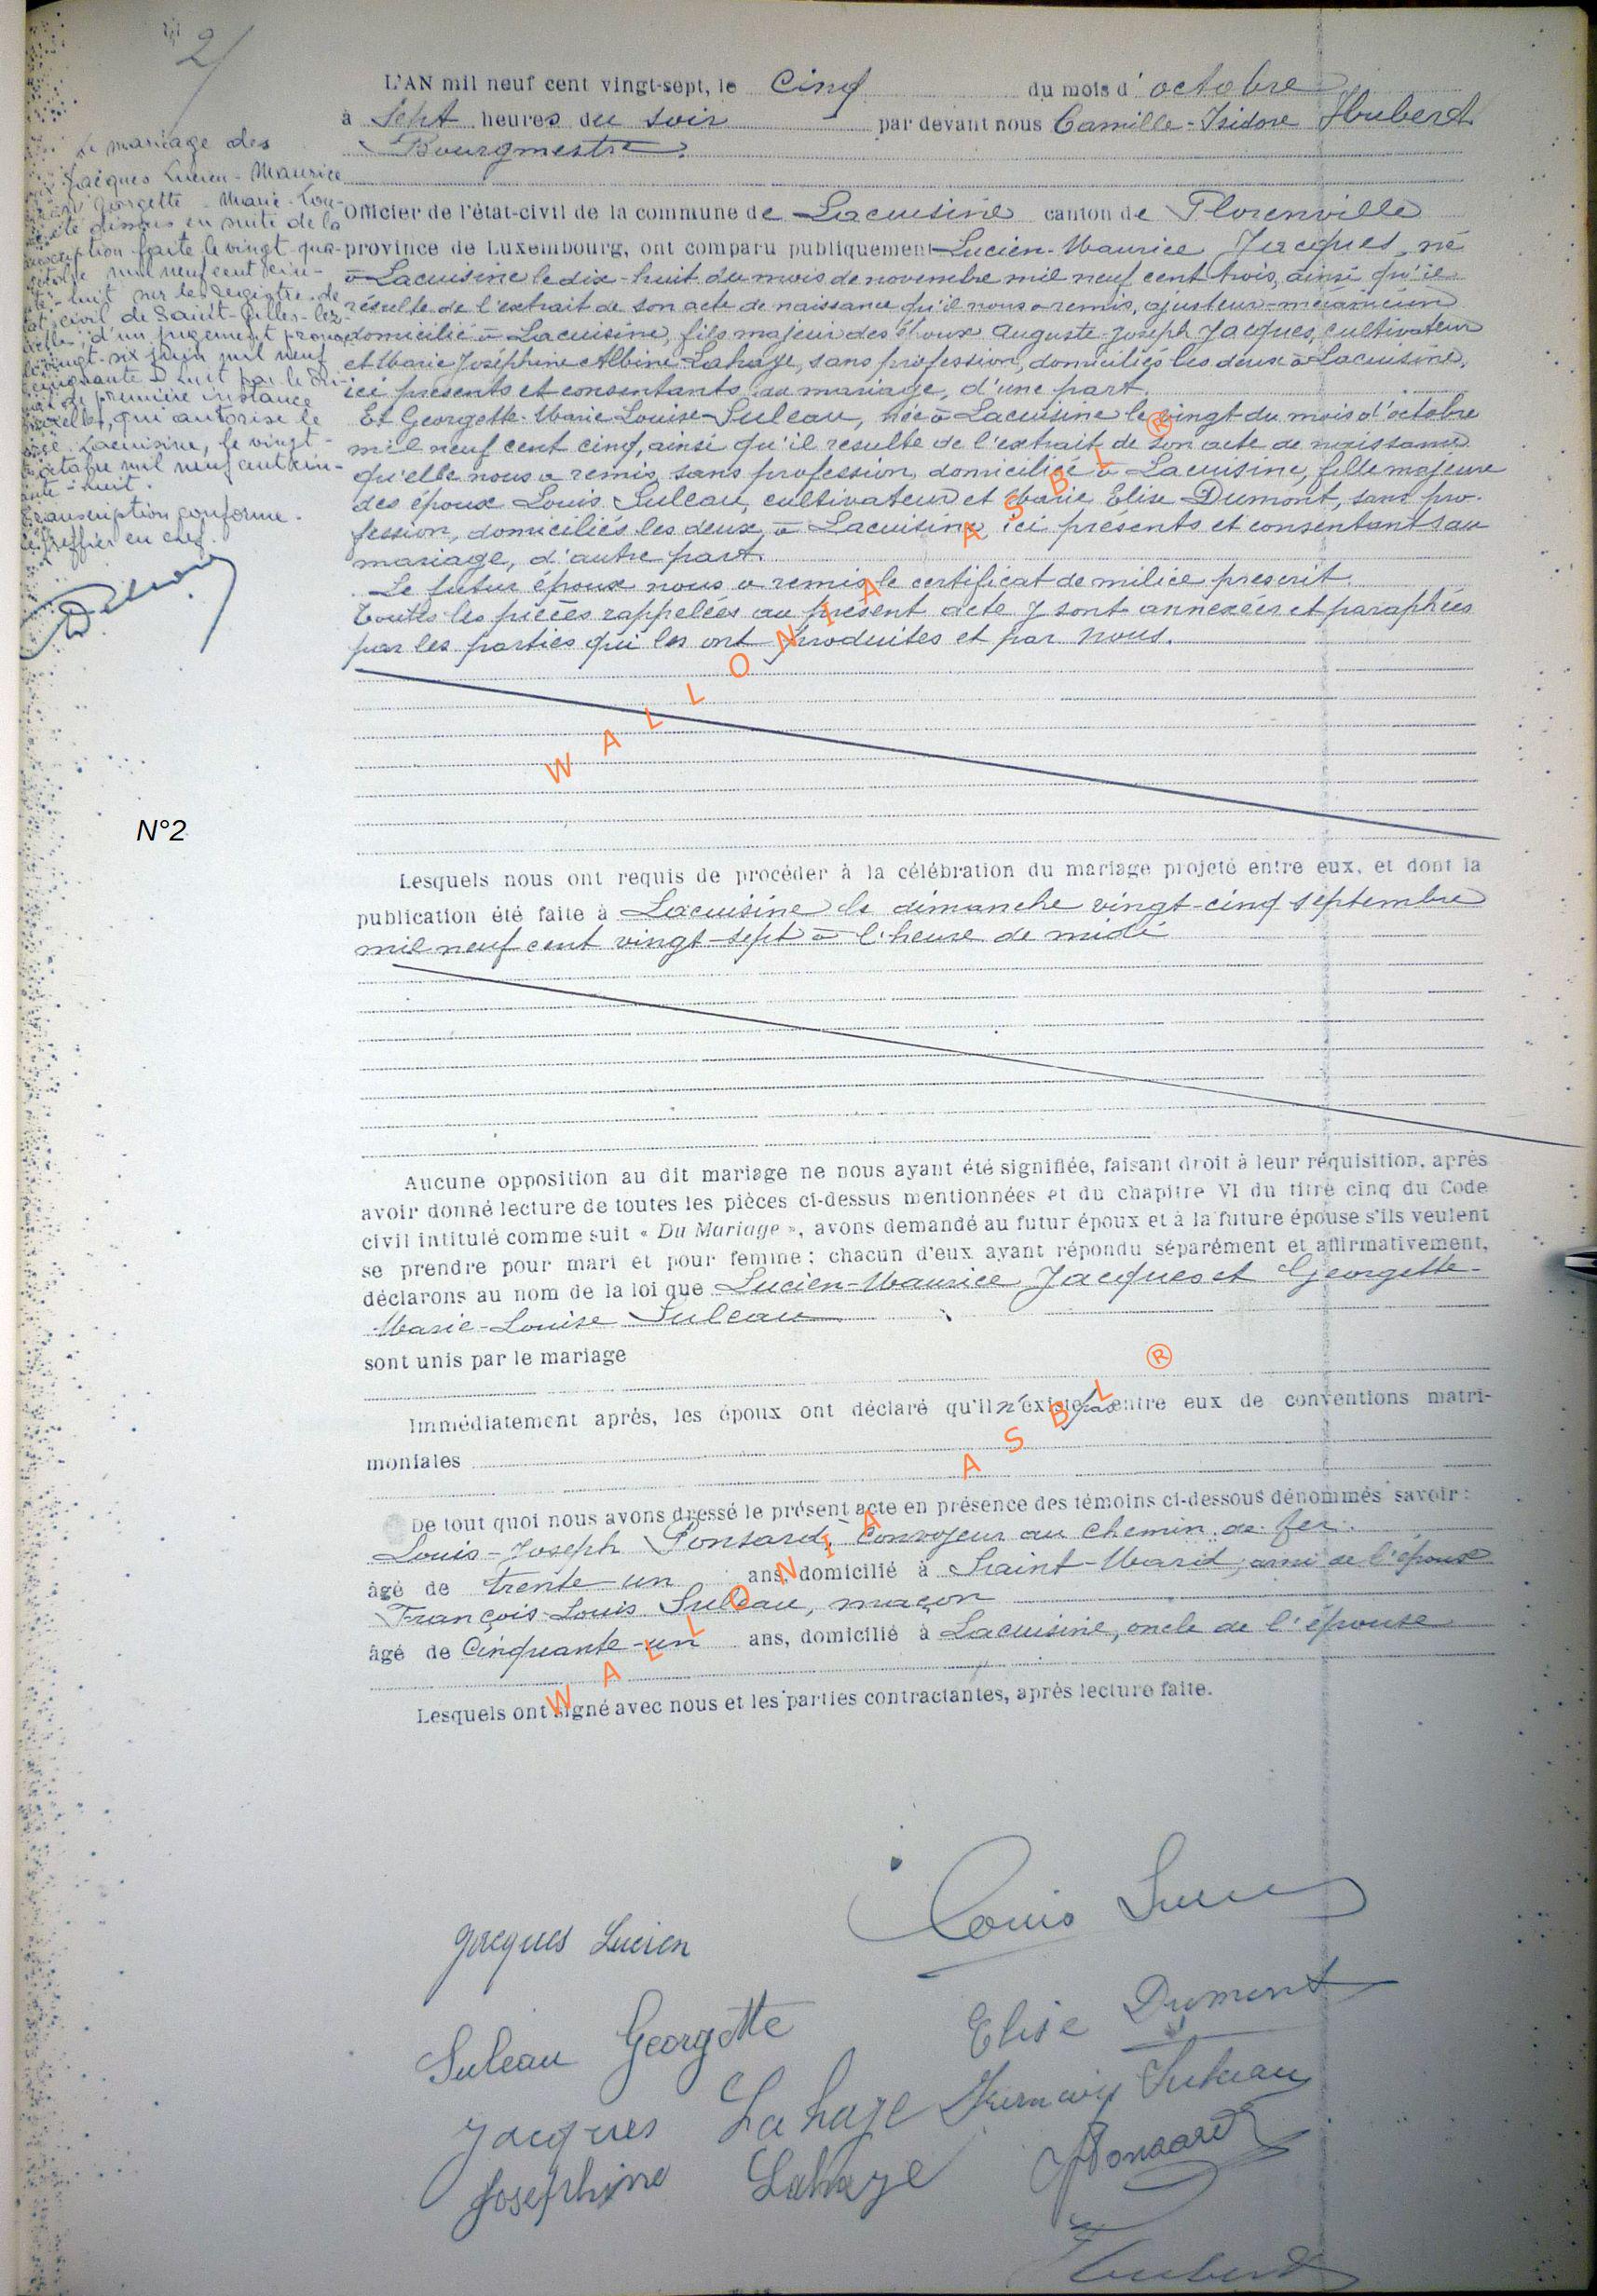 2/
Le mariage des
Jacques Lucien-Maurice
Georgette-Marie-Lou-
été dissous en suite de la
transcription faite le vingt-qua-
octobre mil neuf cent cin-
-huit sur les registres de
civil de Saint-Gilles-lez-
d'un jugement pronon-
vingt-six juin mil neuf
cinquante-huit par le tri-
de première instance
qui autorise le
Lacuisine, le vingt-
octobre mil neuf cent cin-
-huit.
Transcription conforme.
le greffier en chef.
N°2
L'AN mil neuf cent vingt-sept, le cinq du mois d'octobre
à sept heures du soir par devant nous Camille-Isidore Hubert
Bourgmestre
Officier de l'état-civil de la commune de Lacuisine canton de Florenville
province de Luxembourg, ont comparu publiquement Lucien-Maurice Jacques, né
à Lacuisine le dix-huit du mois de novembre mil neuf cent trois, ainsi qu'il
résulte de l'extrait de son acte de naissance qu'il nous a remis, ajusteur-mécanicien
domicilié à Lacuisine, fils majeur des époux Auguste-Joseph Jacques, cultivateur
et Marie Joséphine Albine Lahaye, sans profession, domiciliés les deux à Lacuisine,
ici présents et consentants au mariage, d'une part.
Et Georgette-Marie Louise Suleau, née à Lacuisine le vingt du mois d'octobre
mil neuf cent cinq, ainsi qu'il résulte de l'extrait de son acte de naissance
qu'elle nous a remis, sans profession, domiciliée à Lacuisine, fille majeure
des époux Louis Suleau, cultivateur et Marie Elise Dumont, sans pro-
fession, domiciliés les deux à Lacuisine ici présents et consentants au
mariage, d'autre part.
Le futur époux nous a remis le certificat de milice prescrit.
Toutes les pièces rappelées au présent acte y sont annexées et paraphées
par les parties qui les ont produites et par nous.
WALLONIA ASBL ®
Lesquels nous ont requis de procéder à la célébration du mariage projeté entre eux, et dont la
publication été faite à Lacuisine le dimanche vingt-cinq septembre
mil neuf cent vingt-sept à l'heure de midi
Aucune opposition au dit mariage ne nous ayant été signifiée, faisant droit à leur réquisition, après
avoir donné lecture de toutes les pièces ci-dessus mentionnées et du chapitre VI du titre cinq du Code
civil intitulé comme suit « Du Mariage », avons demandé au futur époux et à la future épouse s'ils veulent
se prendre pour mari et pour femme ; chacun d'eux ayant répondu séparément et affirmativement,
déclarons au nom de la loi que Lucien-Maurice Jacques et Georgette-
Marie-Louise Suleau
sont unis par le mariage
Immédiatement après, les époux ont déclaré qu'il n'existe pas entre eux de conventions matri-
moniales
De tout quoi nous avons dressé le présent acte en présence des témoins ci-dessous dénommés savoir :
Louis-Joseph Ponsard, convoyeur au chemin de fer.
âgé de trente-un ans, domicilié à Saint-Mard, ami de l'époux
François-Louis Suleau, maçon
âgé de cinquante-un ans, domicilié à Lacuisine, oncle de l'épouse
WALLONIA ASBL ®
Lesquels ont signé avec nous et les parties contractantes, après lecture faite.
Jacques Lucien
Louis Suleau
Suleau Georgette
Elise Dumont
Jacques Lahaye
Suleau
Joséphine Lahaye
Ponsard
Hubert